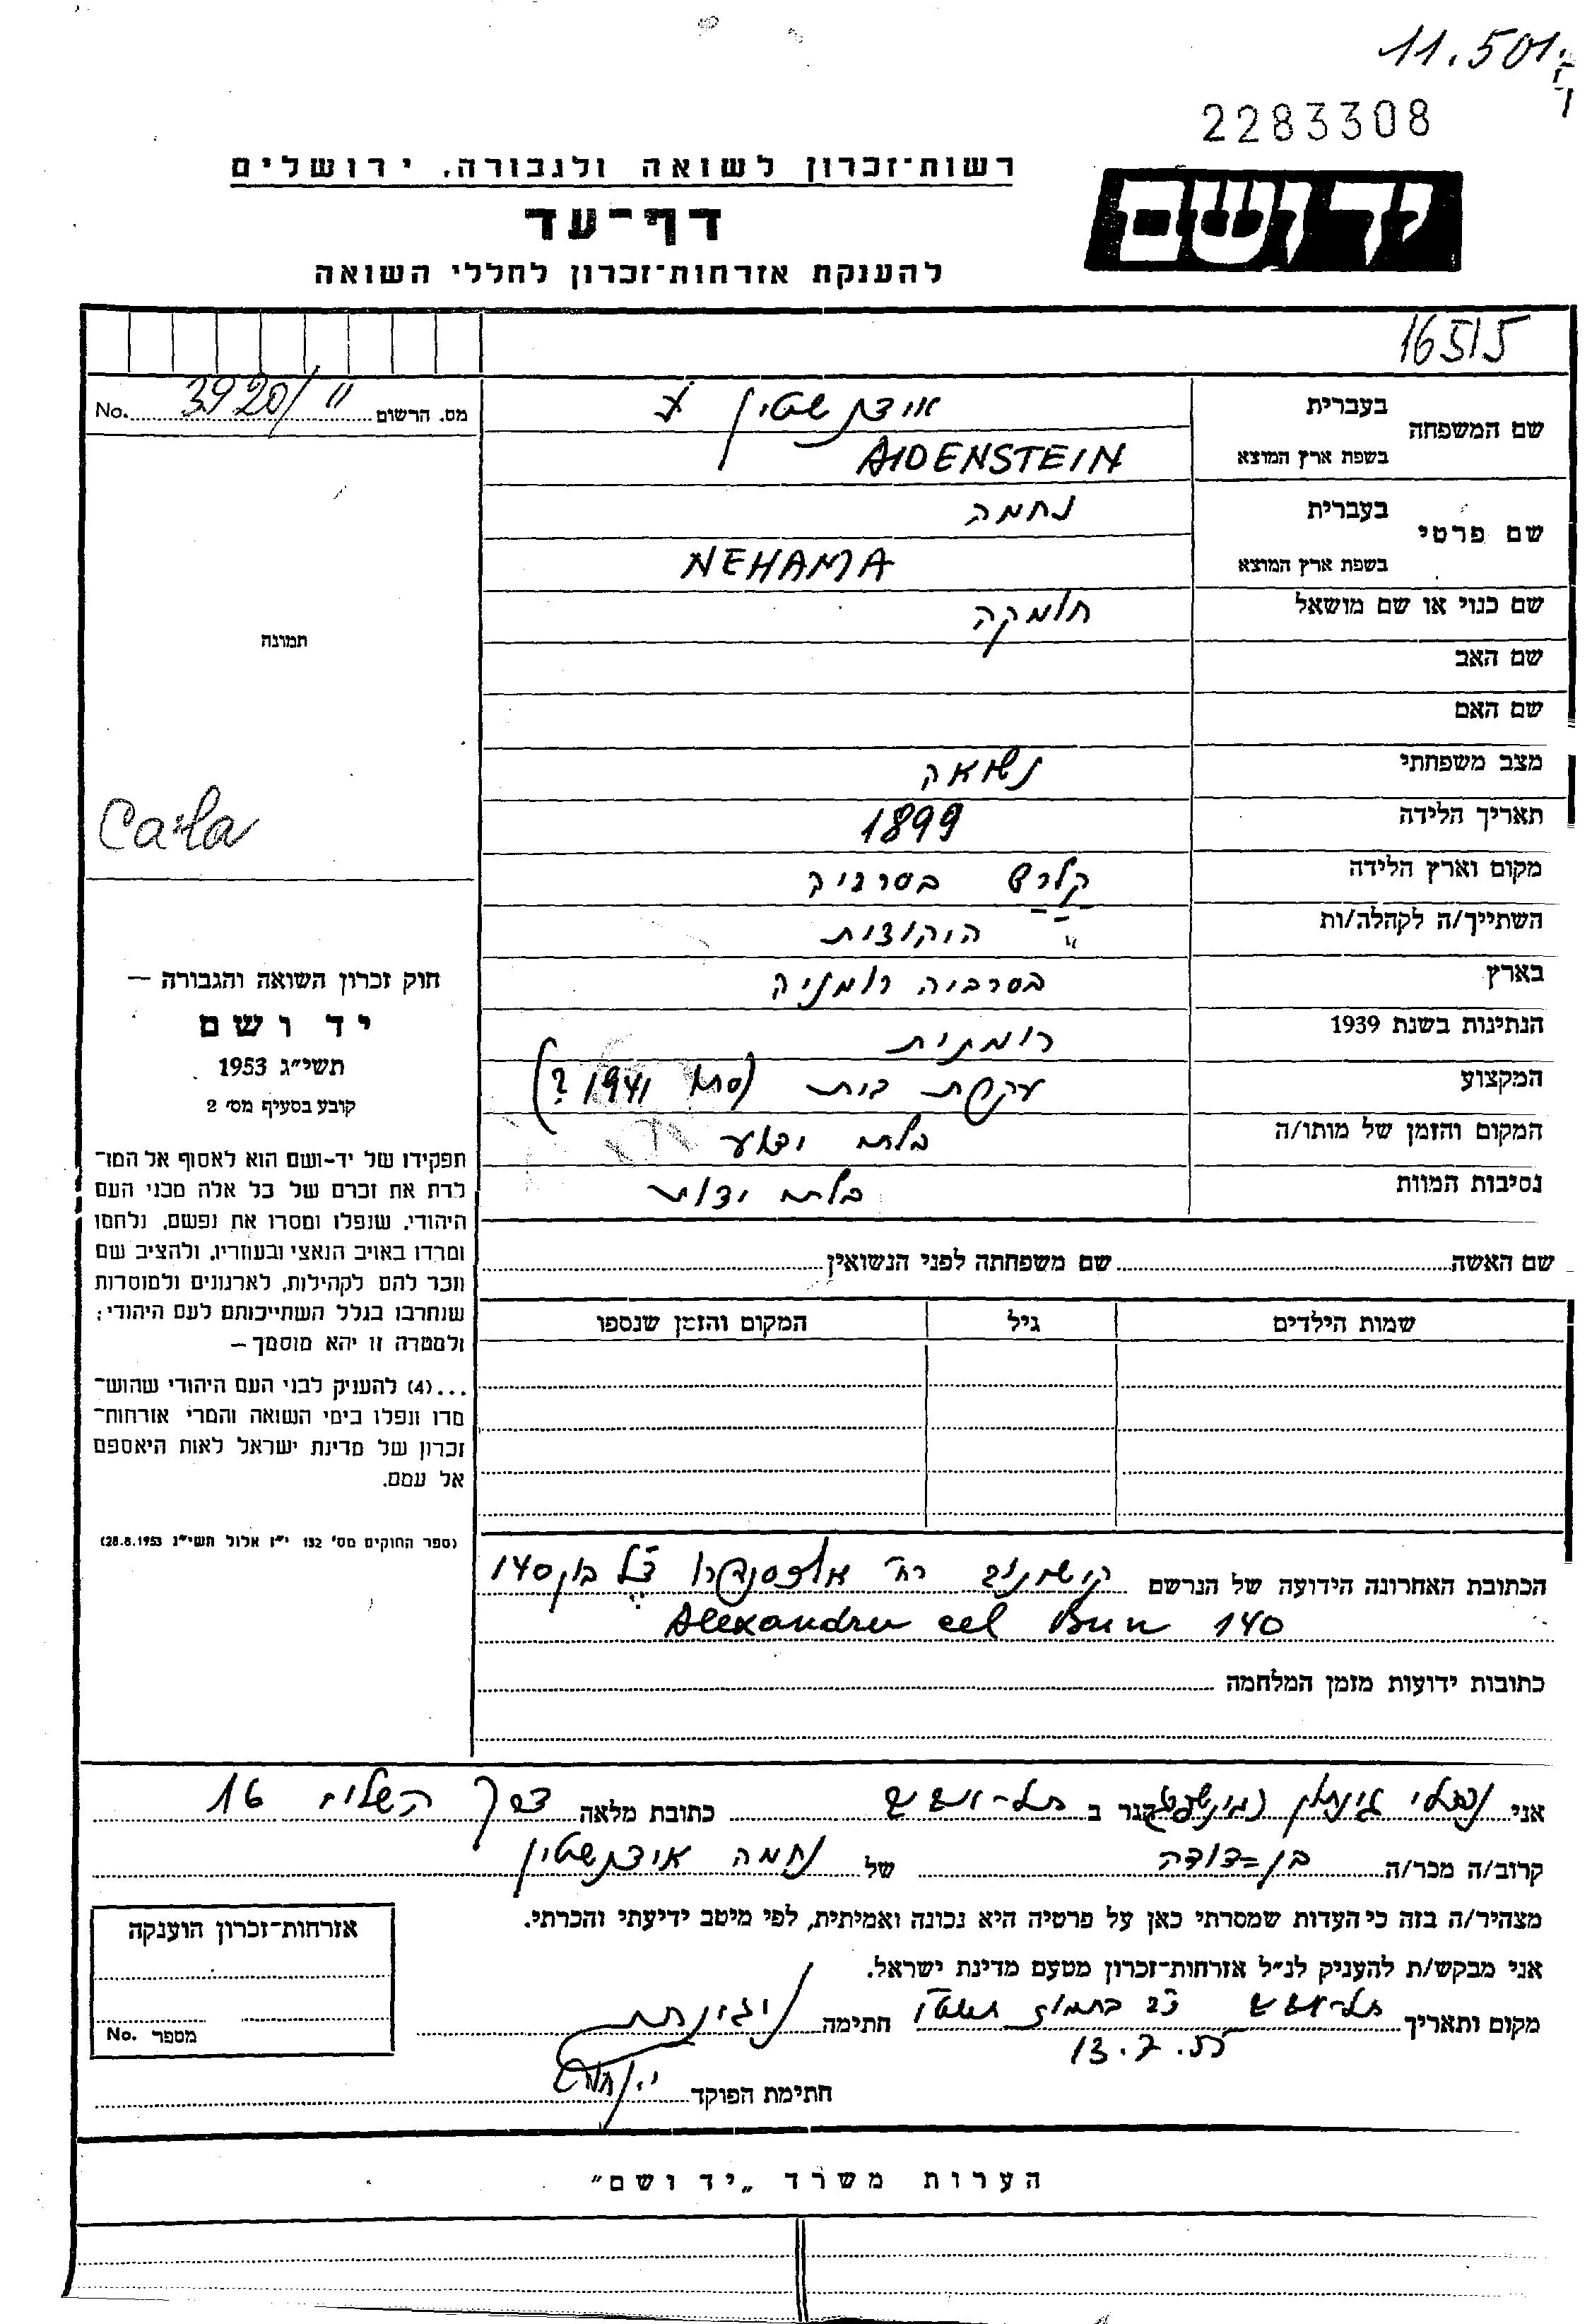 11.501
2283308
רשות־זכרון לשואה ולגבורה, ירושלים
יד ושם
דף־עד
להענקת אזרחות־זכרון לחללי השואה
16515
מס. הרשום 3920/11 No.
שם המשפחה
בעברית איידנשטיין
בשפת ארץ המוצא AIDENSTEIN
שם פרטי
בעברית נחמה
בשפת ארץ המוצא NEHAMA
שם כנוי או שם מושאל
תמונה
שם האב
שם האם
מצב משפחתי נשואה
תאריך הלידה 1899
Carla
מקום וארץ הלידה קלרש בסרביה
השתייך/ה לקהלה/ות
בארץ בסרביה רומניה
הנתינות בשנת 1939 רומנית
המקצוע עקרת בית (1941 ?)
המקום והזמן של מותו/ה בלתי ידוע
נסיבות המוות בלתי ידוע
חוק זכרון השואה והגבורה —
יד ושם
תשי״ג 1953
קובע בסעיף מס׳ 2
תפקידו של יד-ושם הוא לאסוף אל המו־
לדת את זכרם של כל אלה מבני העם
היהודי, שנפלו ומסרו את נפשם, נלחמו
ומרדו באויב הנאצי ובעוזריו, ולהציב שם
וזכר להם לקהילות, לארגונים ולמוסדות
שנחרבו בגלל השתייכותם לעם היהודי;
ולמטרה זו יהא מוסמך —
...(4) להעניק לבני העם היהודי שהוש־
מדו ונפלו בימי השואה והמרי אזרחות־
זכרון של מדינת ישראל לאות היאספם
אל עמם.
(ספר החוקים מס׳ 132 י״ז אלול תשי״ג 28.8.1953)
שם האשה שם משפחתה לפני הנשואין
שמות הילדים גיל המקום והזמן שנספו
הכתובת האחרונה הידועה של הנרשם קישינוב רח׳ אלכסנדרו צ׳ל בון 140
Alexandru cel Bun 140
כתובות ידועות מזמן המלחמה
אני נפתלי הגר ב תל-אביב כתובת מלאה דרך השלום 16
קרוב/ה מכר/ה בן-דודה של נחמה איידנשטיין
מצהיר/ה בזה כי העדות שמסרתי כאן על פרטיה היא נכונה ואמיתית, לפי מיטב ידיעתי והכרתי.
אני מבקש/ת להעניק לנ״ל אזרחות־זכרון מטעם מדינת ישראל.
מקום ותאריך תל-אביב בתמוז תשט״ו חתימה
13.7.55
חתימת הפוקד
אזרחות־זכרון הוענקה
מספר No.
הערות משרד „יד ושם״